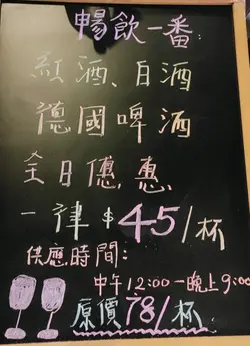 暢飲一番:
紅酒、白酒
德國啤酒
全日優惠
一律$45/杯
供應時間:
中午12:00一晚上9:00
原價78/杯